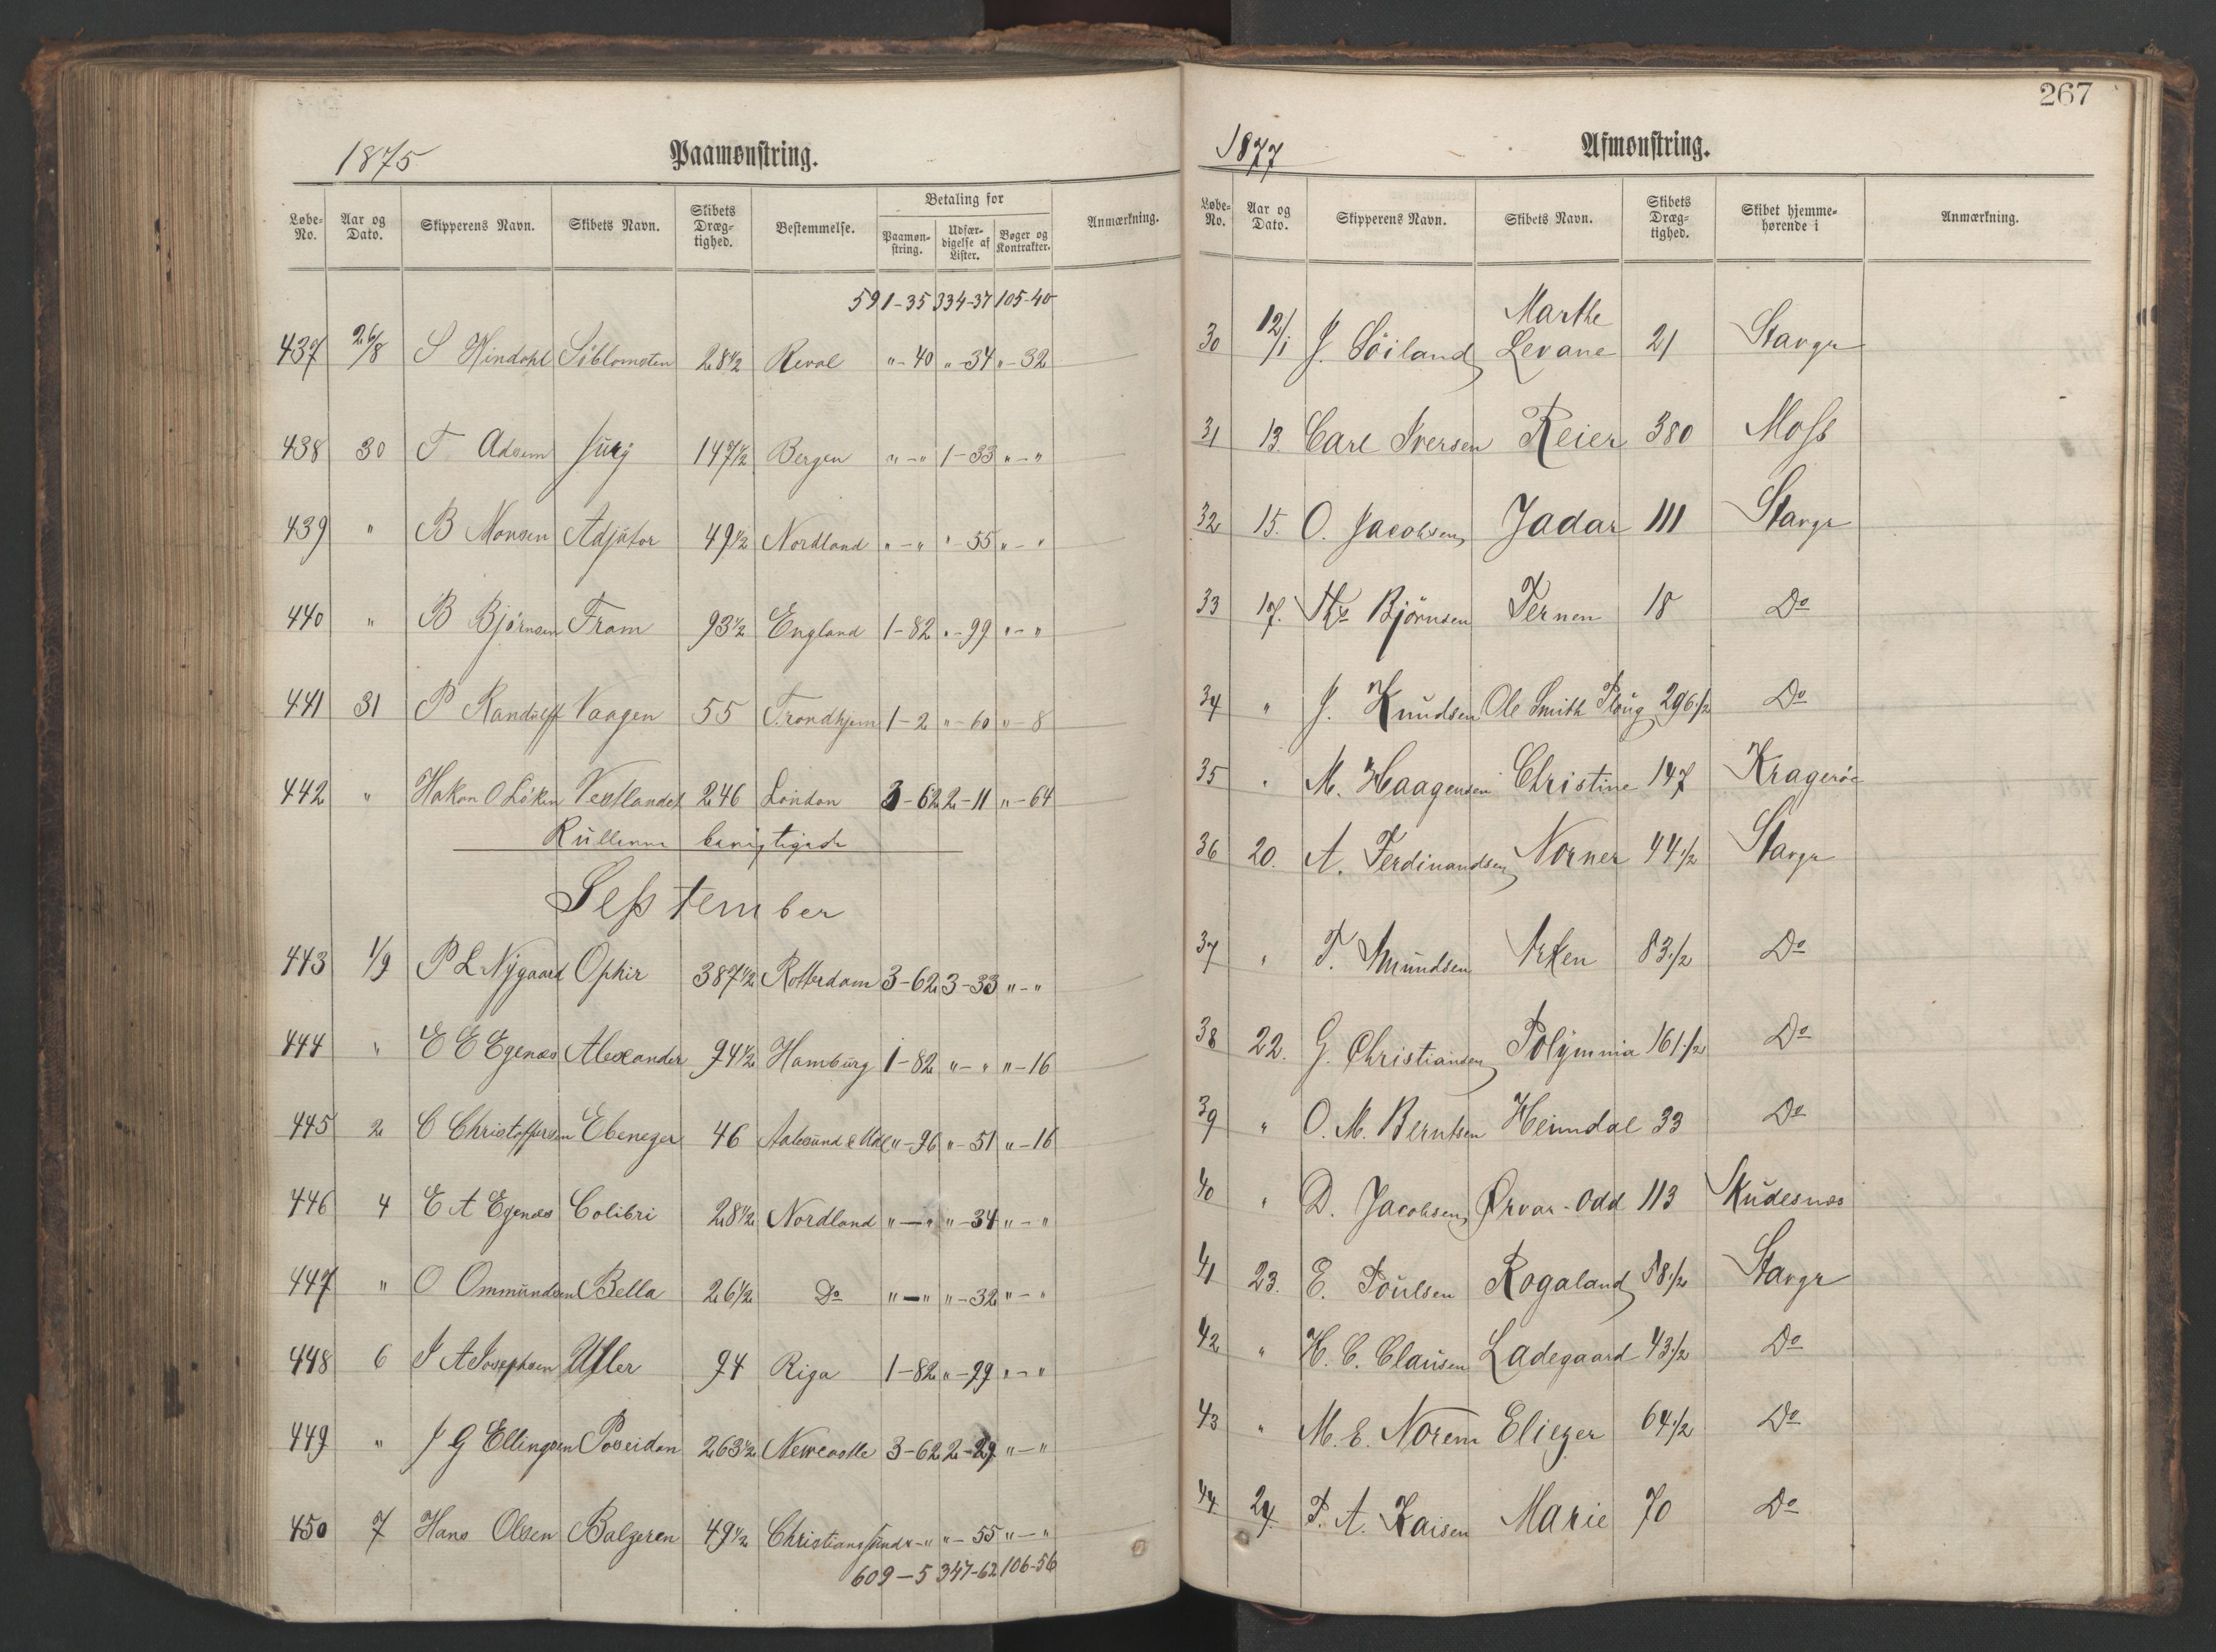 1875 Paamønstring.
Løbe-No. Aar og Dato. Skipperens Navn. Skibets Navn. Skibets Dræg-tighed. Bestemmelse. Betaling for Paamøn-string. Udfær-digelse af Lister. Bøger og Kontrakter. Anmærkning.
591-35 334-37 105-40
437 26/8 S Windahl Söblomsten 28 1/2 Reval "-40 "-34 "-32
438 30 T Adsem 147 1/2 Bergen "-" 1-33 "-"
439 " B Monsen Adjutor 49 1/2 Nordland "-" "-55 "-"
440 " B Björnsen Fram 93 1/2 England 1-82 "-99 "-"
441 31 P Randulff Vaagen 55 Trondhjem 1-2 "-60 "-8
442 " Hakon O Löken Vestlandet 246 London 3-62 2-11 "-64
Rullerne berigtigede
September
443 1/9 P L Nÿgaard Ophir 387 1/2 Rotterdam 3-62 3-33 "-"
444 " E E Egenæs Alexander 94 1/2 Hamburg 1-82 "-" "-16
445 2 C Christoffersen Ebenezer 46 Aalesund "-96 "-51 "-16
446 4 E A Egenæs Colibri 28 1/2 Nordland "-" "-34 "-"
447 " O Ommundsen Bella 26 1/2 Do "-" "-32 "-"
448 6 J A Josephsen Uller 94 Riga 1-82 "-99 "-"
449 " J G Ellingsen Poseidon 263 1/2 Newcastle 3-62 2-29 "-"
450 7 Hans Olsen Balzeren 49 1/2 Christianssund "-" "-55 "-"
609-5 347-62 106-56
267
1877 Afmønstring.
Løbe-No. Aar og Dato. Skipperens Navn. Skibets Navn. Skibets Dræg-tighed. Skibet hjemme-hørende i Anmærkning.
30 12/1 J. Söiland Marthe Levane 21 Stavgr
31 13. Carl Iversen Reier 380 Moss
32 15. O. Jacobsen Jadar 111 Stavgr
33 17. Ths Björnsen Ternen 18 Do
34 " J. Knudsen Ole Smith Ploug 296 1/2 Do
35 " M. Haagensen Christine 147 Krageröe
36 20. A. Ferdinandsen Norner 44 1/2 Stavgr
37 " T. Amundsen Arken 83 1/2 Do
38 22. G. Christiansen Polymnia 161 1/2 Do
39 " O. M. Berntsen Heimdal 33 Do
40 " D. Jacobsen Ørvar-Odd 113 Skudesnæs
41 23. E. Poulsen Rogaland 58 1/2 Stavgr
42 " H. C. Clausen Ladegaard 43 1/2 Do
43 " M. E. Norem Eliezer 64 1/2 Do
44 24. T. A. Kaisen Marie 70 Do